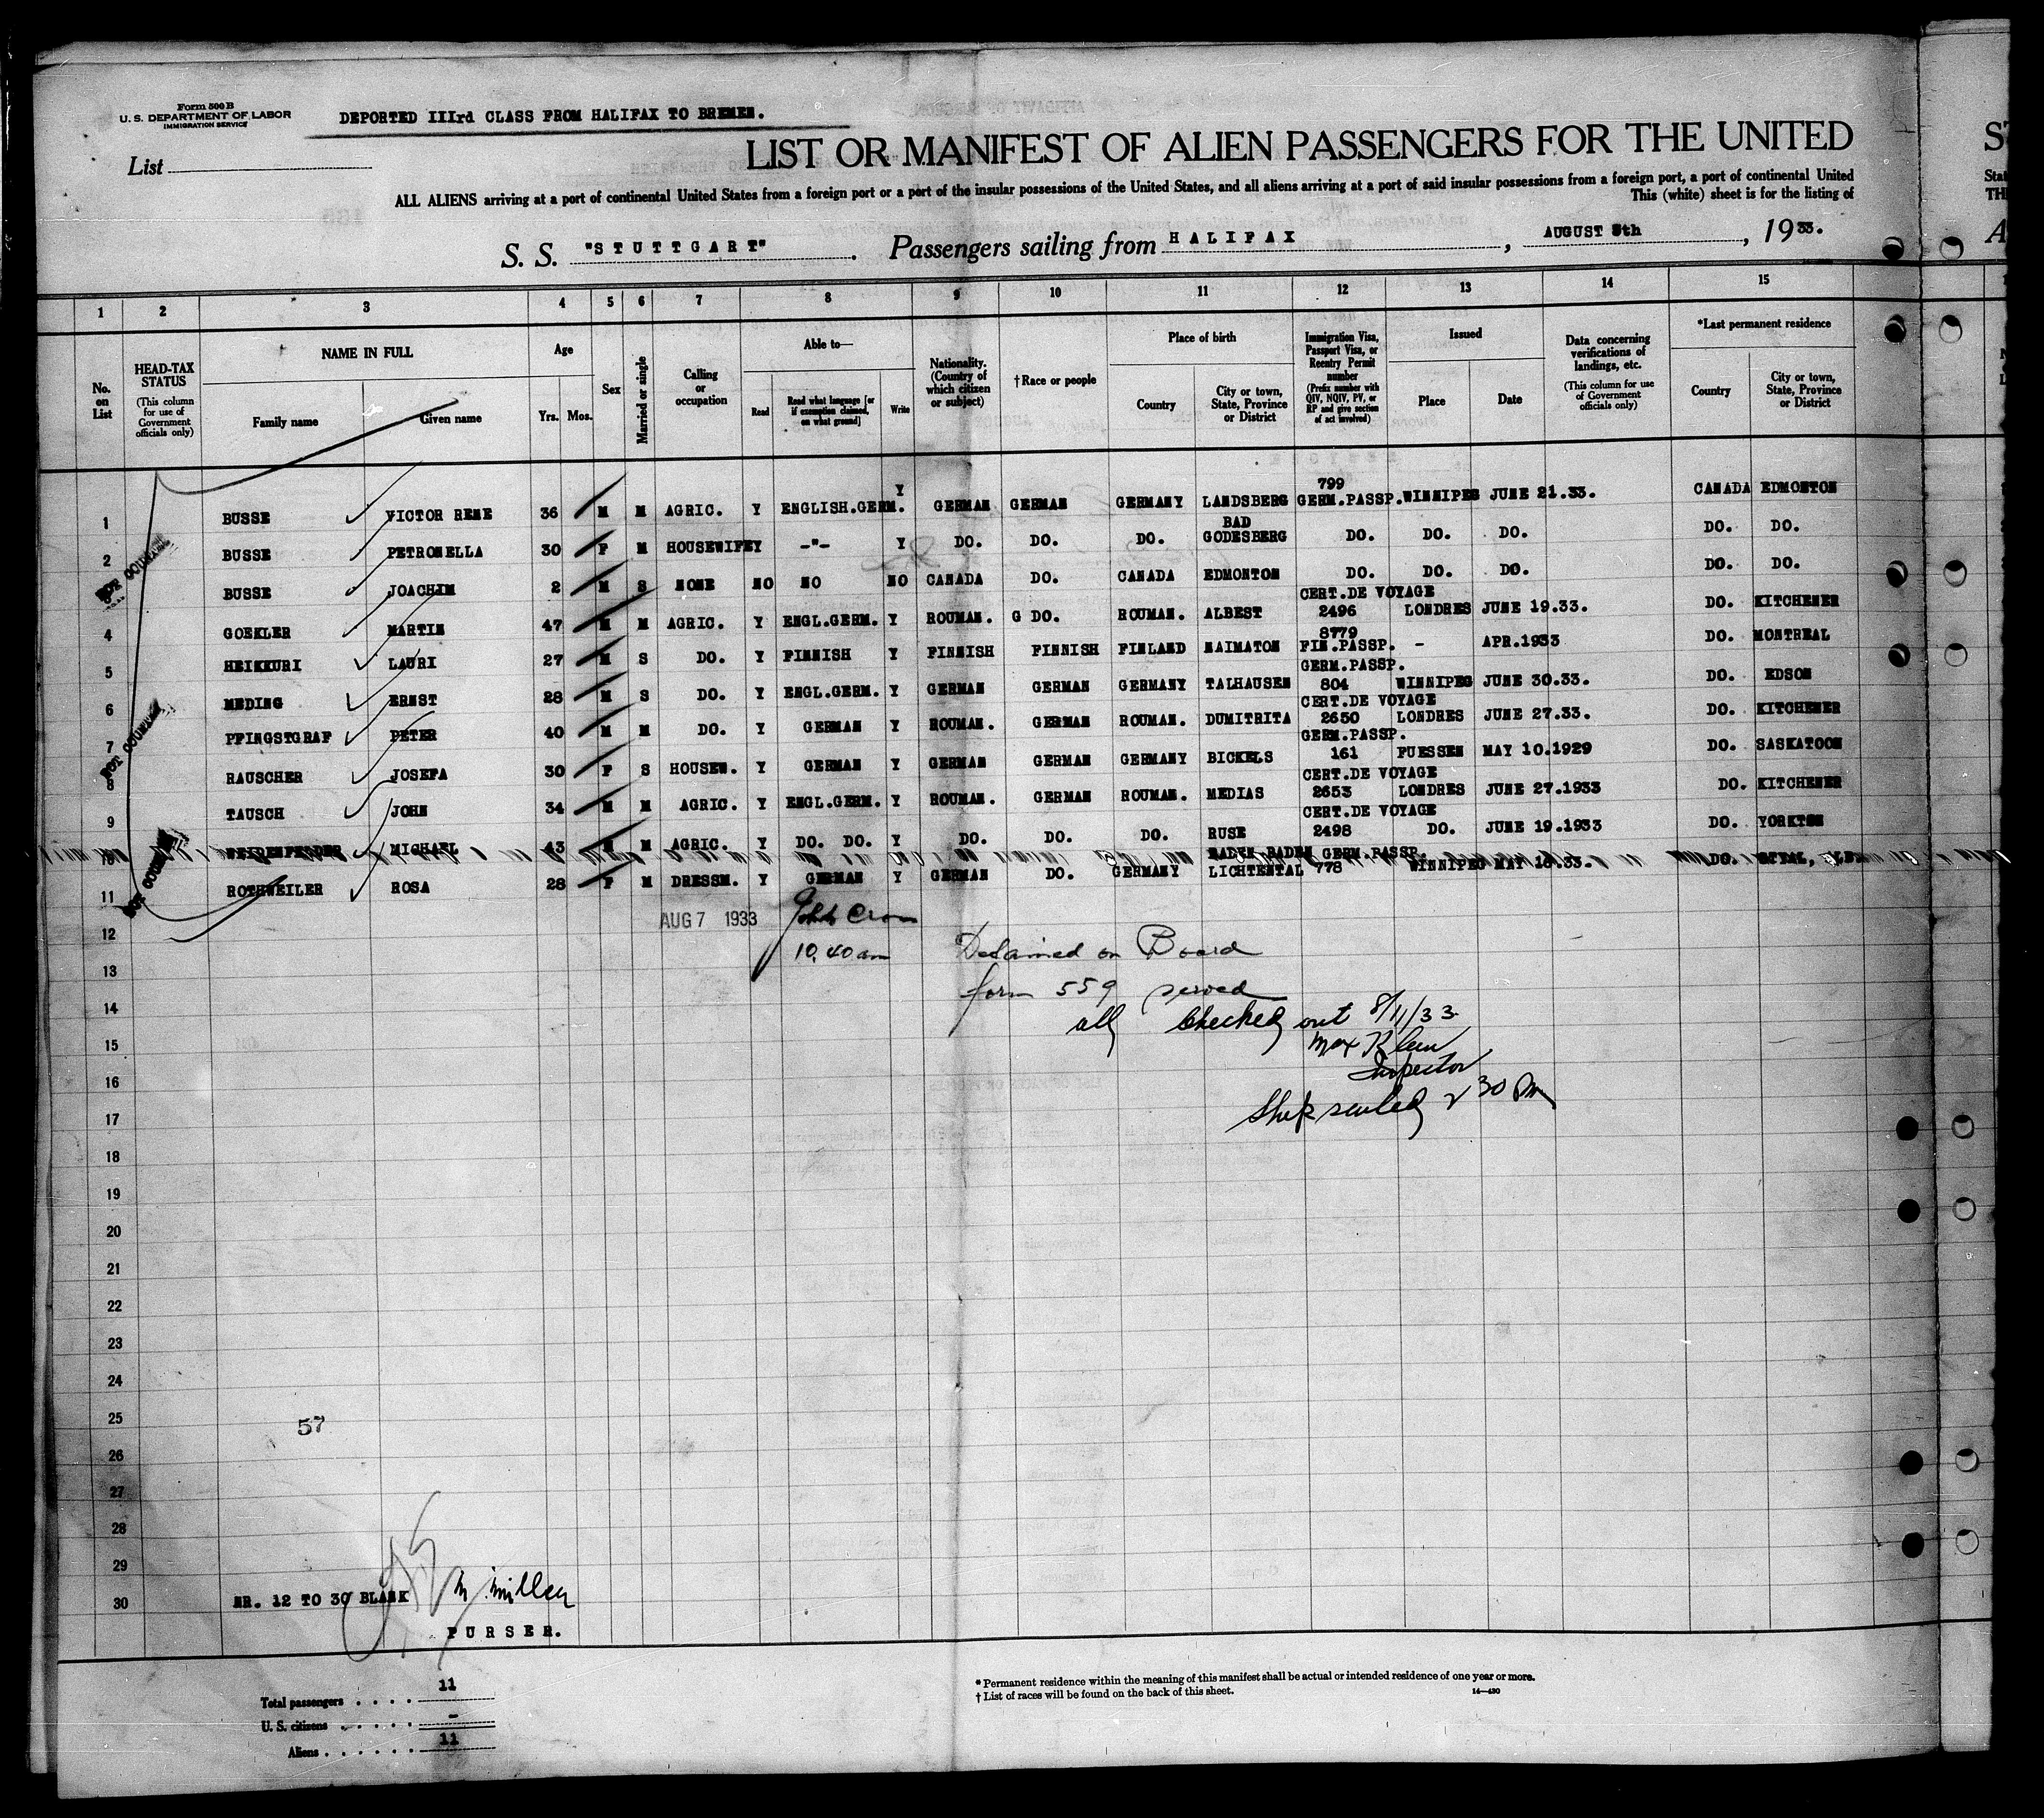 Form 500 B
U. S. DEPARTMENT OF LABOR
IMMIGRATION SERVICE
DEPORTED IIIrd CLASS FROM HALIFAX TO BREMEN.
List
LIST OR MANIFEST OF ALIEN PASSENGERS FOR THE UNITED
ST
ALL ALIENS arriving at a port of continental United States from a foreign port or a port of the insular possessions of the United States, and all aliens arriving at a port of said insular possessions from a foreign port, a port of continental United
Stat
This (white) sheet is for the listing of
TH
S. S. "STUTTGART". Passengers sailing from HALIFAX, AUGUST 5th, 1933.
A
1 2 3 4 5 6 7 8 9 10 11 12 13 14 15
No. on List
HEAD-TAX STATUS (This column for use of Government officials only)
NAME IN FULL
Family name
Given name
Age
Yrs. Mos.
Sex
Married or single
Calling or occupation
Able to—
Read
Read what language [or if exemption claimed, on what ground]
Write
Nationality. (Country of which citizen or subject)
†Race or people
Place of birth
Country
City or town, State, Province or District
Immigration Visa, Passport Visa, or Reentry Permit number (Prefix number with QIV, NQIV, PV, or RP and give section of act involved)
Issued
Place
Date
Data concerning verifications of landings, etc. (This column for use of Government officials only)
*Last permanent residence
Country
City or town, State, Province or District
1 BUSSE VICTOR RENE 36 M M AGRIC. Y ENGLISH.GERM. Y GERMAN GERMAN GERMANY LANDSBERG 799 GERM.PASSP. WINNIPEG JUNE 21.33. CANADA EDMONTON
2 BUSSE PETRONELLA 30 F M HOUSEWIFE Y -"- Y DO. DO. DO. BAD GODESBERG DO. DO. DO. DO. DO.
3 BUSSE JOACHIM 2 M S NONE NO NO NO CANADA DO. CANADA EDMONTON DO. DO. DO. DO. DO.
4 GOEKLER MARTIN 47 M M AGRIC. Y ENGL.GERM. Y ROUMAN. G DO. ROUMAN. ALBEST CERT.DE VOYAGE 2496 LONDRES JUNE 19.33. DO. KITCHENER
5 HEIKKURI LAURI 27 M S DO. Y FINNISH Y FINNISH FINNISH FINLAND NAIMATON 8779 FIN.PASSP. - APR.1933 DO. MONTREAL
6 MEDING ERNST 28 M S DO. Y ENGL.GERM. Y GERMAN GERMAN GERMANY TALHAUSEN GERM.PASSP. 804 WINNIPEG JUNE 30.33. DO. EDSON
7 PFINGSTGRAF PETER 40 M M DO. Y GERMAN Y ROUMAN. GERMAN ROUMAN. DUMITRITA CERT.DE VOYAGE 2650 LONDRES JUNE 27.33. DO. KITCHENER
8 RAUSCHER JOSEFA 30 F S HOUSEW. Y GERMAN Y GERMAN GERMAN GERMANY BICKELS GERM.PASSP. 161 FUESSEN MAY 10.1929 DO. SASKATOON
9 TAUSCH JOHN 34 M M AGRIC. Y ENGL.GERM. Y ROUMAN. GERMAN ROUMAN. MEDIAS CERT.DE VOYAGE 2653 LONDRES JUNE 27.1933 DO. KITCHENER
10 WEIDENFELDER MICHAEL 43 M M AGRIC. Y DO. DO. Y DO. DO. DO. RUSE CERT.DE VOYAGE 2498 DO. JUNE 19.1933 DO. YORKTON
11 ROTHWEILER ROSA 28 F M DRESSM. Y GERMAN Y GERMAN DO. GERMANY BADEN BADEN LICHTENTAL GERM.PASSP. 778 WINNIPEG MAY 18.33. DO.
NOT COUNTED
NOT COUNTED
NOT COUNTED
12 AUG 7 1933 John
13 10.40 am Detained on Board
form 559 served
14 all checked out 8/11/33
15 Max Klein
Inspector
16
17 Ship sailed 2 30 Pm
18
19
20
21
22
23
24
25 57
26
27
28
29
30 NR. 12 TO 30 BLANK
PURSER.
Total passengers . . . . 11
U. S. citizens . . . . . -
Aliens . . . . . . 11
* Permanent residence within the meaning of this manifest shall be actual or intended residence of one year or more.
† List of races will be found on the back of this sheet.
14—430